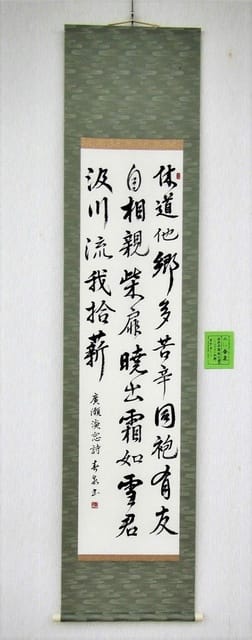 休道他鄉多苦辛同袍有友
自相親柴扉曉出霜如雪君
汲川流我拾薪
廣瀨淡窓詩